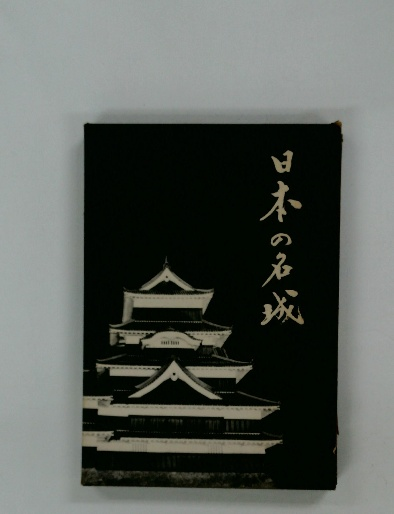 日本の名城